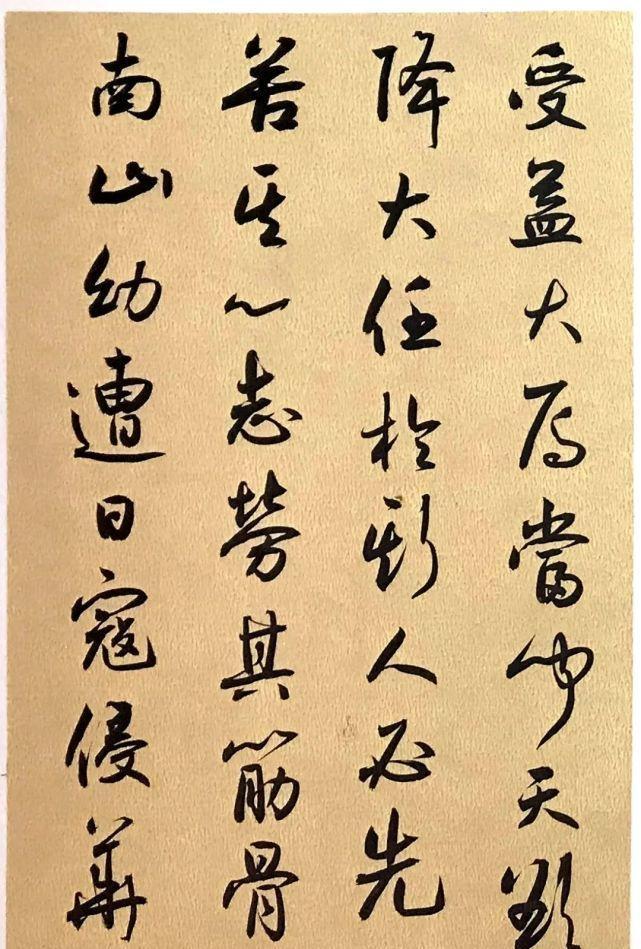 受益大焉當聞天欲
降大任於斯人必先
苦其心志勞其筋骨
南山幼遭日寇侵華